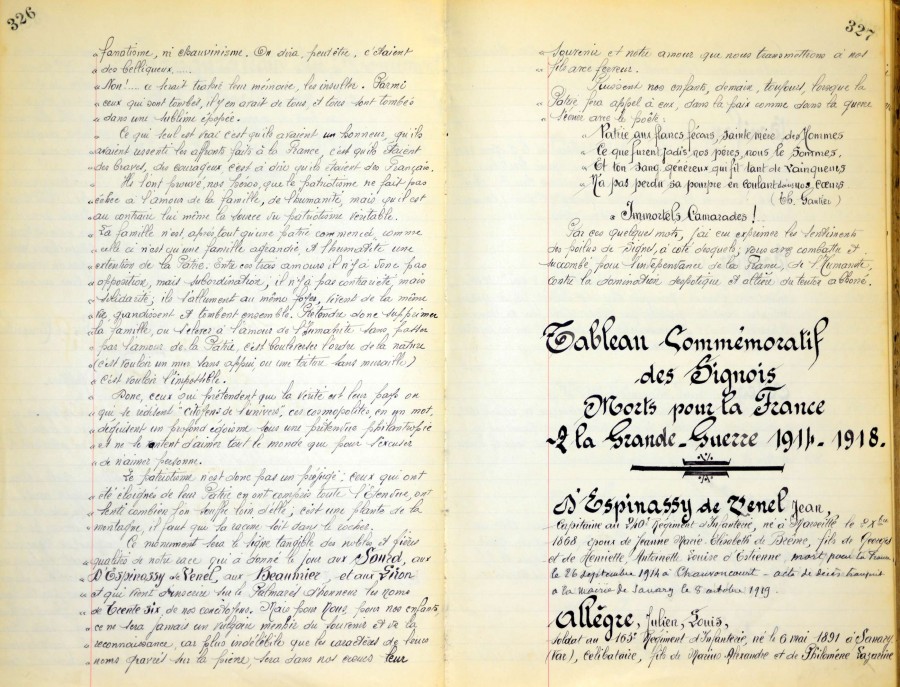 326
" fanatisme, ni chauvinisme. On dira, peut être, c'étaient
" des belliqueux.....
" Non!... ce serait trahir leur mémoire, les insulter. Parmi
" ceux qui sont tombés, il y en avait de tous, et tous sont tombés
" dans une sublime épopée.
" Ce qui seul est vrai c'est qu'ils avaient un honneur, qu'ils
" avaient ressenti les affronts faits à la France, c'est qu'ils étaient
" des braves, des courageux c'est à dire qu'ils étaient des Français.
" Ils l'ont prouvé, nos héros, que le patriotisme ne fait pas
" échec à l'amour de la famille, de l'humanité, mais qu'il est
" au contraire lui même la source du patriotisme véritable.
" La famille n'est après tout qu'une patrie commencée, comme
" celle ci n'est qu'une famille agrandie, et l'humanité une
" extention de la Patrie. Entre ces trois amours il n'y a donc pas
" opposition, mais subordination, il n'y a pas contrariété, mais
" solidarité; ils s'allument au même foyer, vivent de la même
" vie, grandissent et tombent ensemble. Prétendre donc supprimer
" la famille, ou s'élever à l'amour de l'Humanité sans passer
" par l'amour de la Patrie, c'est bouleverser l'ordre de la nature
" (c'est vouloir un mur sans appui ou une toiture sans muraille)
" c'est vouloir l'impossible.
" Donc, ceux qui prétendent que la vérité est leur pays ou
" qui se disent "citoyens de l'univers", ces cosmopolites, en un mot,
" déguisent un profond égoïsme sous une prétention philanthropie
" et ne se content d'aimer tout le monde que pour s'excuser
" de n'aimer personne.
" Le patriotisme n'est donc pas un préjugé: ceux qui ont
" été éloignés de leur Patrie en ont compris toute l'étendue, ont
" senti combien l'on souffre loin d'elle; c'est une plante de la
" montagne, il faut que sa racine soit dans le rocher.
" Ce monument sera le signe tangible des nobles et fières
" qualités de notre race qui a donné le jour aux Soned, aux
" D'Espinassy de Venel, aux Beaumier, et aux Gion
" et qui vient d'inscrire sur le Palmarès d'honneur les noms
" de trente six de nos concitoyens. Mais pour nous, pour nos enfants
" ce ne sera jamais un vulgaire menhir du souvenir et de la
" reconnaissance, car plus indélébile que les caractères de leurs
" noms gravés sur la pierre, sera dans nos cœurs leur
327
" souvenir et notre amour que nous transmettrons à nos
" fils avec ferveur.
" Puissent nos enfants, demain, toujours, lorsque la
Patrie fera appel à eux, dans la paix comme dans la guerre
s'écrier avec le poète:
" Patrie aux flancs féconds, sainte mère des Hommes
" Ce que furent jadis nos pères, nous le sommes,
" Et ton sang généreux qui fit tant de vainqueurs
" N'a pas perdu sa pourpre en coulant dans nos cœurs
(Th. Gautier)
" Immortels Camarades!
Par ces quelques mots, j'ai cru exprimer les sentiments
des poilus de Signes, à côté desquels, vous avez combattu et
succombé, pour l'indépendance de la France, de l'Humanité,
contre la domination despotique et altière du teuton abhorré.
Tableau Commémoratif
des Signois
Morts pour la France
à la Grande-Guerre 1914-1918.
D'Espinassy de Venel Jean,
Capitaine au 240e Régiment d'Infanterie, né à Marseille, le 2 Xbre
1868 époux de Jeanne Marie Elisabeth de fils de Georges
et de Henriette, Antoinette Louise d'Estienne, mort pour la France
le 26 septembre 1914 à Chauvoncourt - acte de décès transcrit
à la mairie de Sanary le 8 octobre 1919.
Allègre, Julien, Louis,
soldat au 165e Régiment d'Infanterie, né le 6 mai 1891 à Sanary
(Var), célibataire, fils de Marius Alexandre et de Philomène